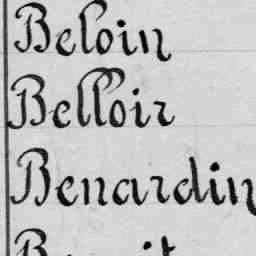 Beloin
Belloir
Benardin